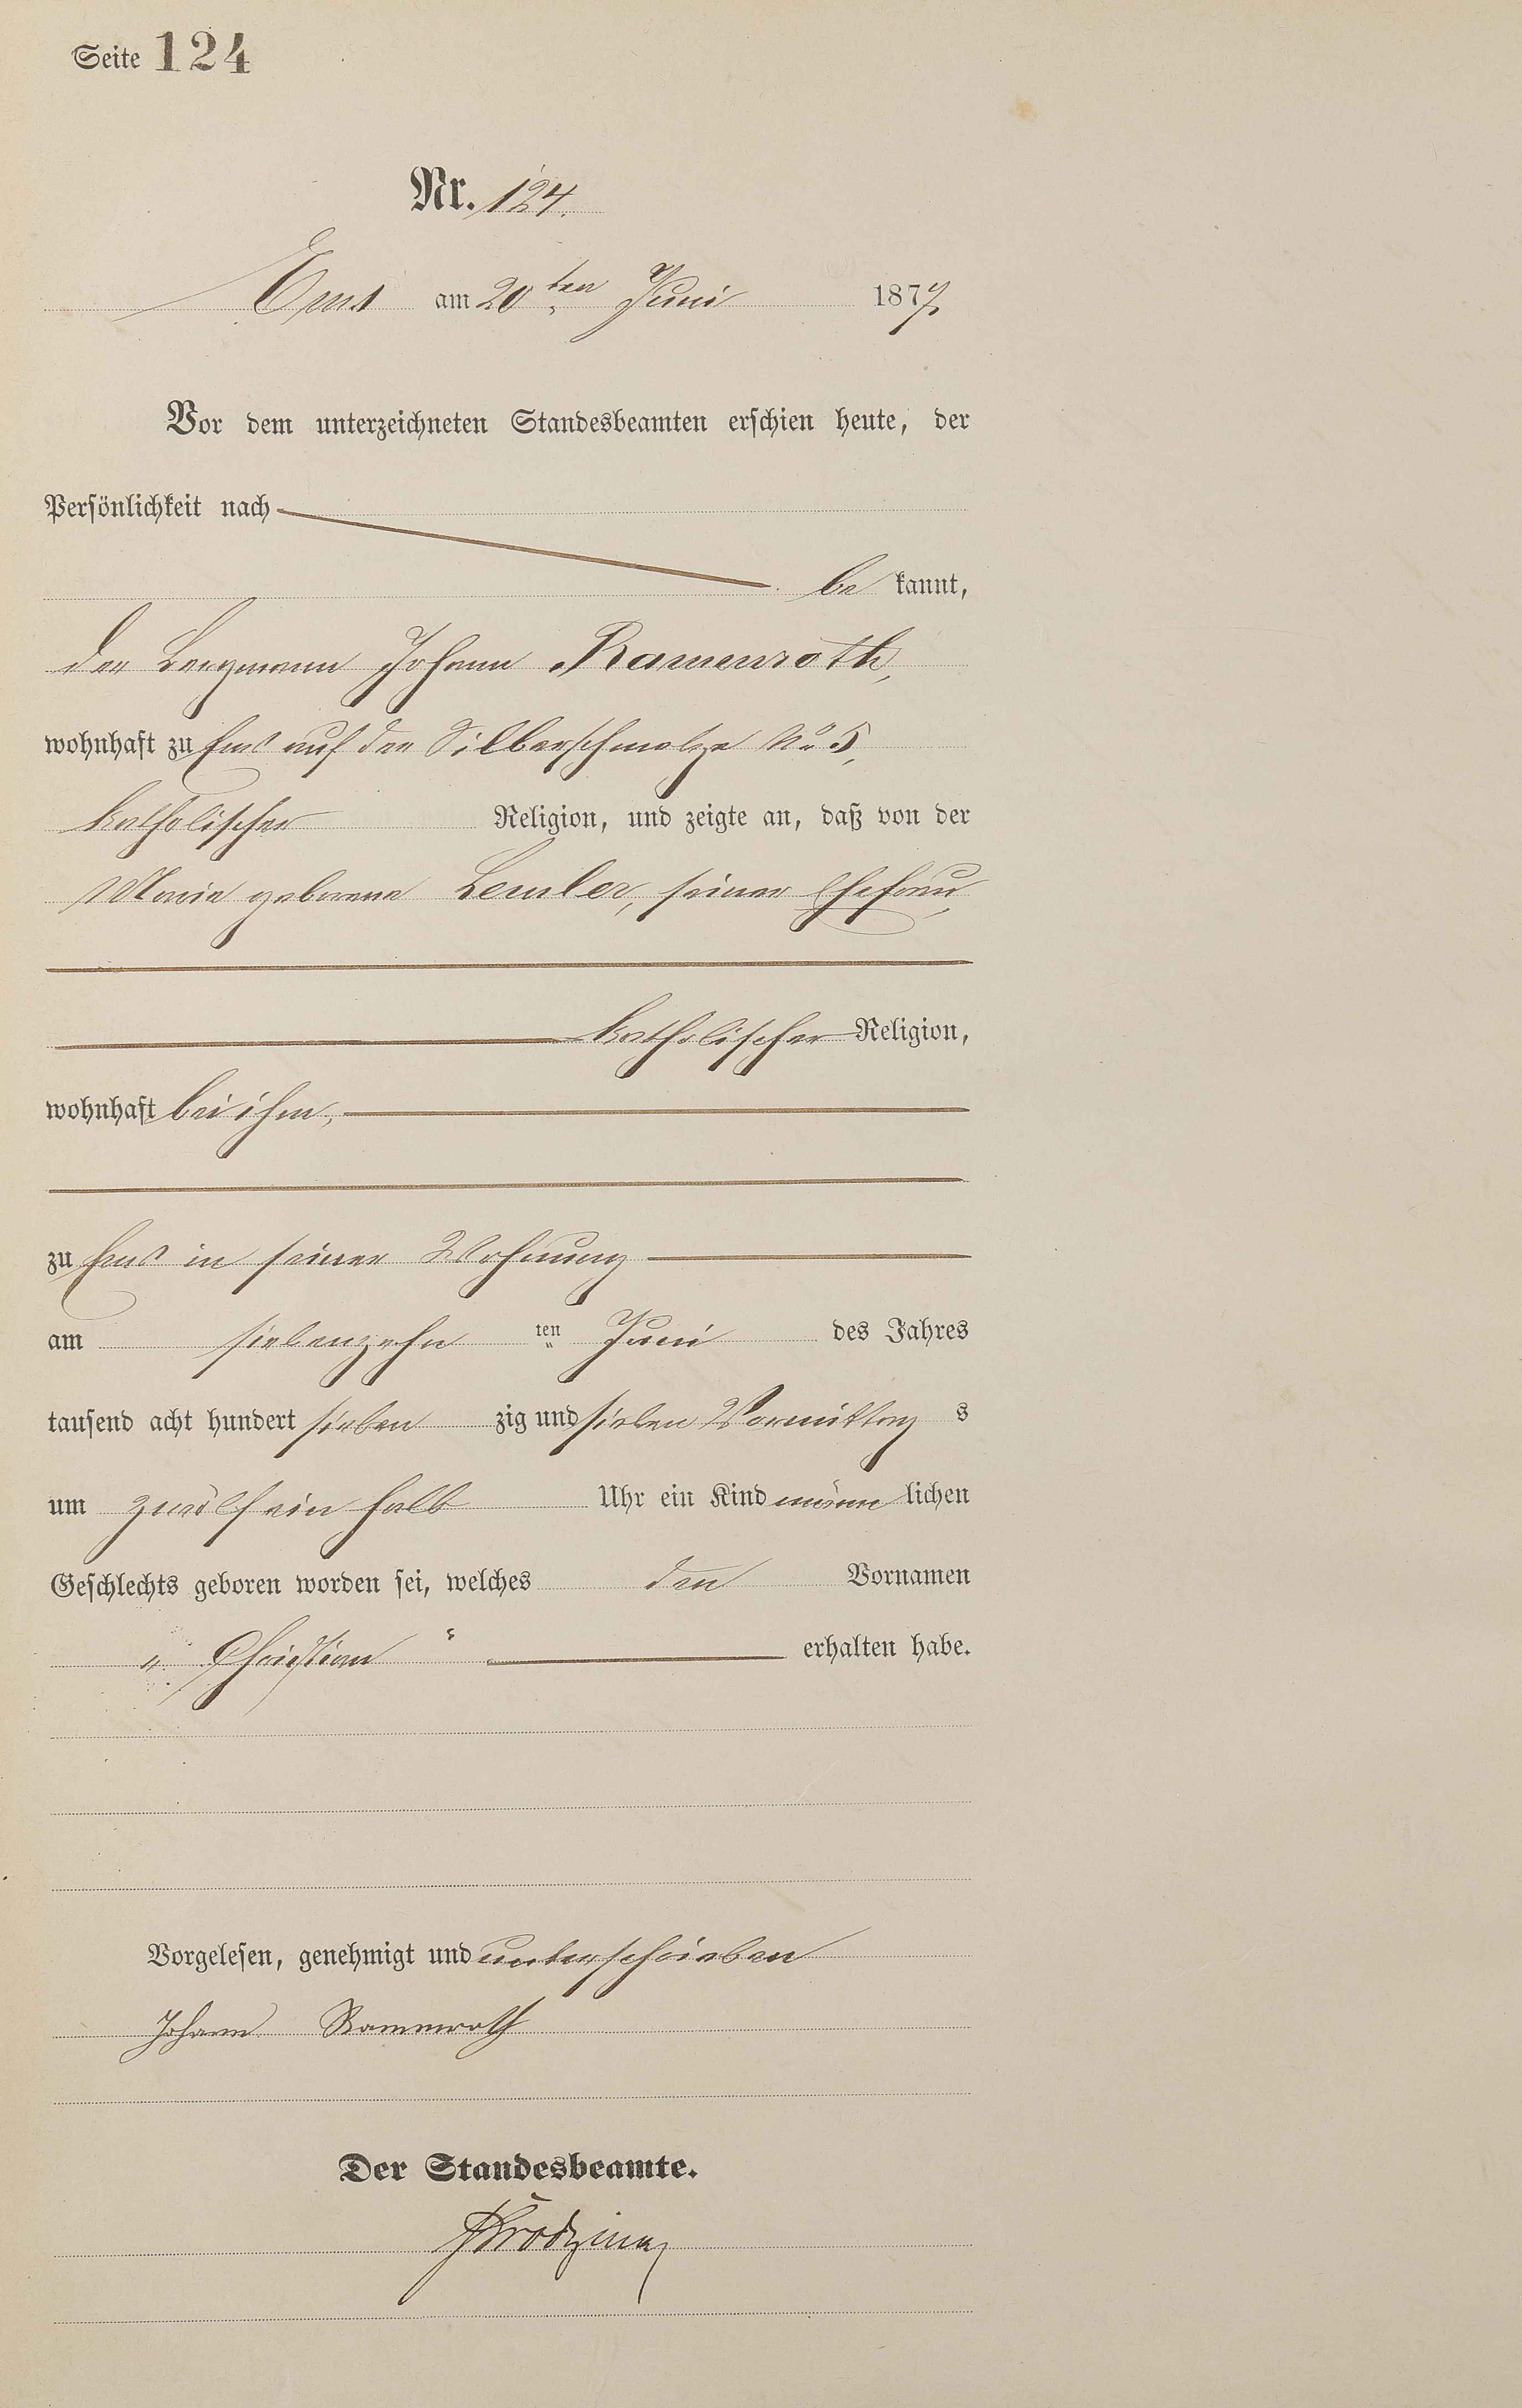 Seite 124
Nr. 124.
Ems am 20ten Juni 1877.
Vor dem unterzeichneten Standesbeamten erschien heute, der
Persönlichkeit nach
be kannt,
der Bergmann Johann Ramenroth,
wohnhaft zu Ems auf der Silberschmelze No 5,
katholischer Religion, und zeigte an, daß von der
Maria geborene Lemler, seiner Ehefrau,
katholischer Religion,
wohnhaft bei ihm,
zu Ems in seiner Wohnung
am siebenzehn ten Juni des Jahres
tausend acht hundert sieben zig und sieben Vormittag s
um zwölf ein halb Uhr ein Kind männ lichen
Geschlechts geboren worden sei, welches den Vornamen
„Christian“ erhalten habe.
Vorgelesen, genehmigt und unterschrieben
Johann Rammroth
Der Standesbeamte.